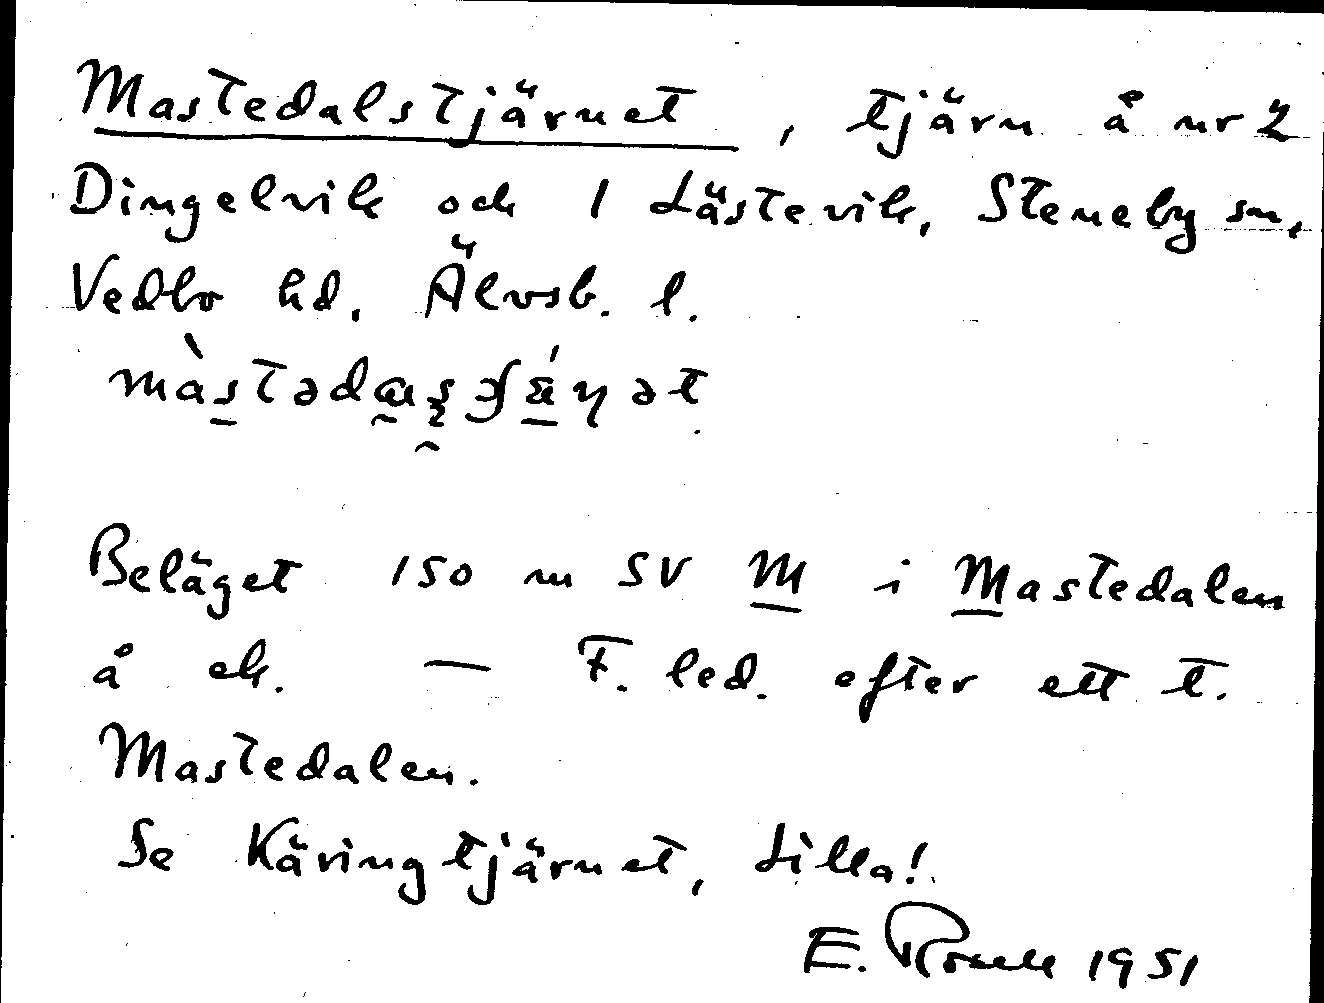 Mastedalstjärnet, tjärn å nr 2
Dingelvik och 1 Lästevik, Steneby sn,
Vedbo hd, Älvsb. l.
Beläget 150 m SV M i Mastedalen
å ek. — F. led. efter ett t.
Mastedalen.
Se Käringtjärnet, Lilla!
E. 1951